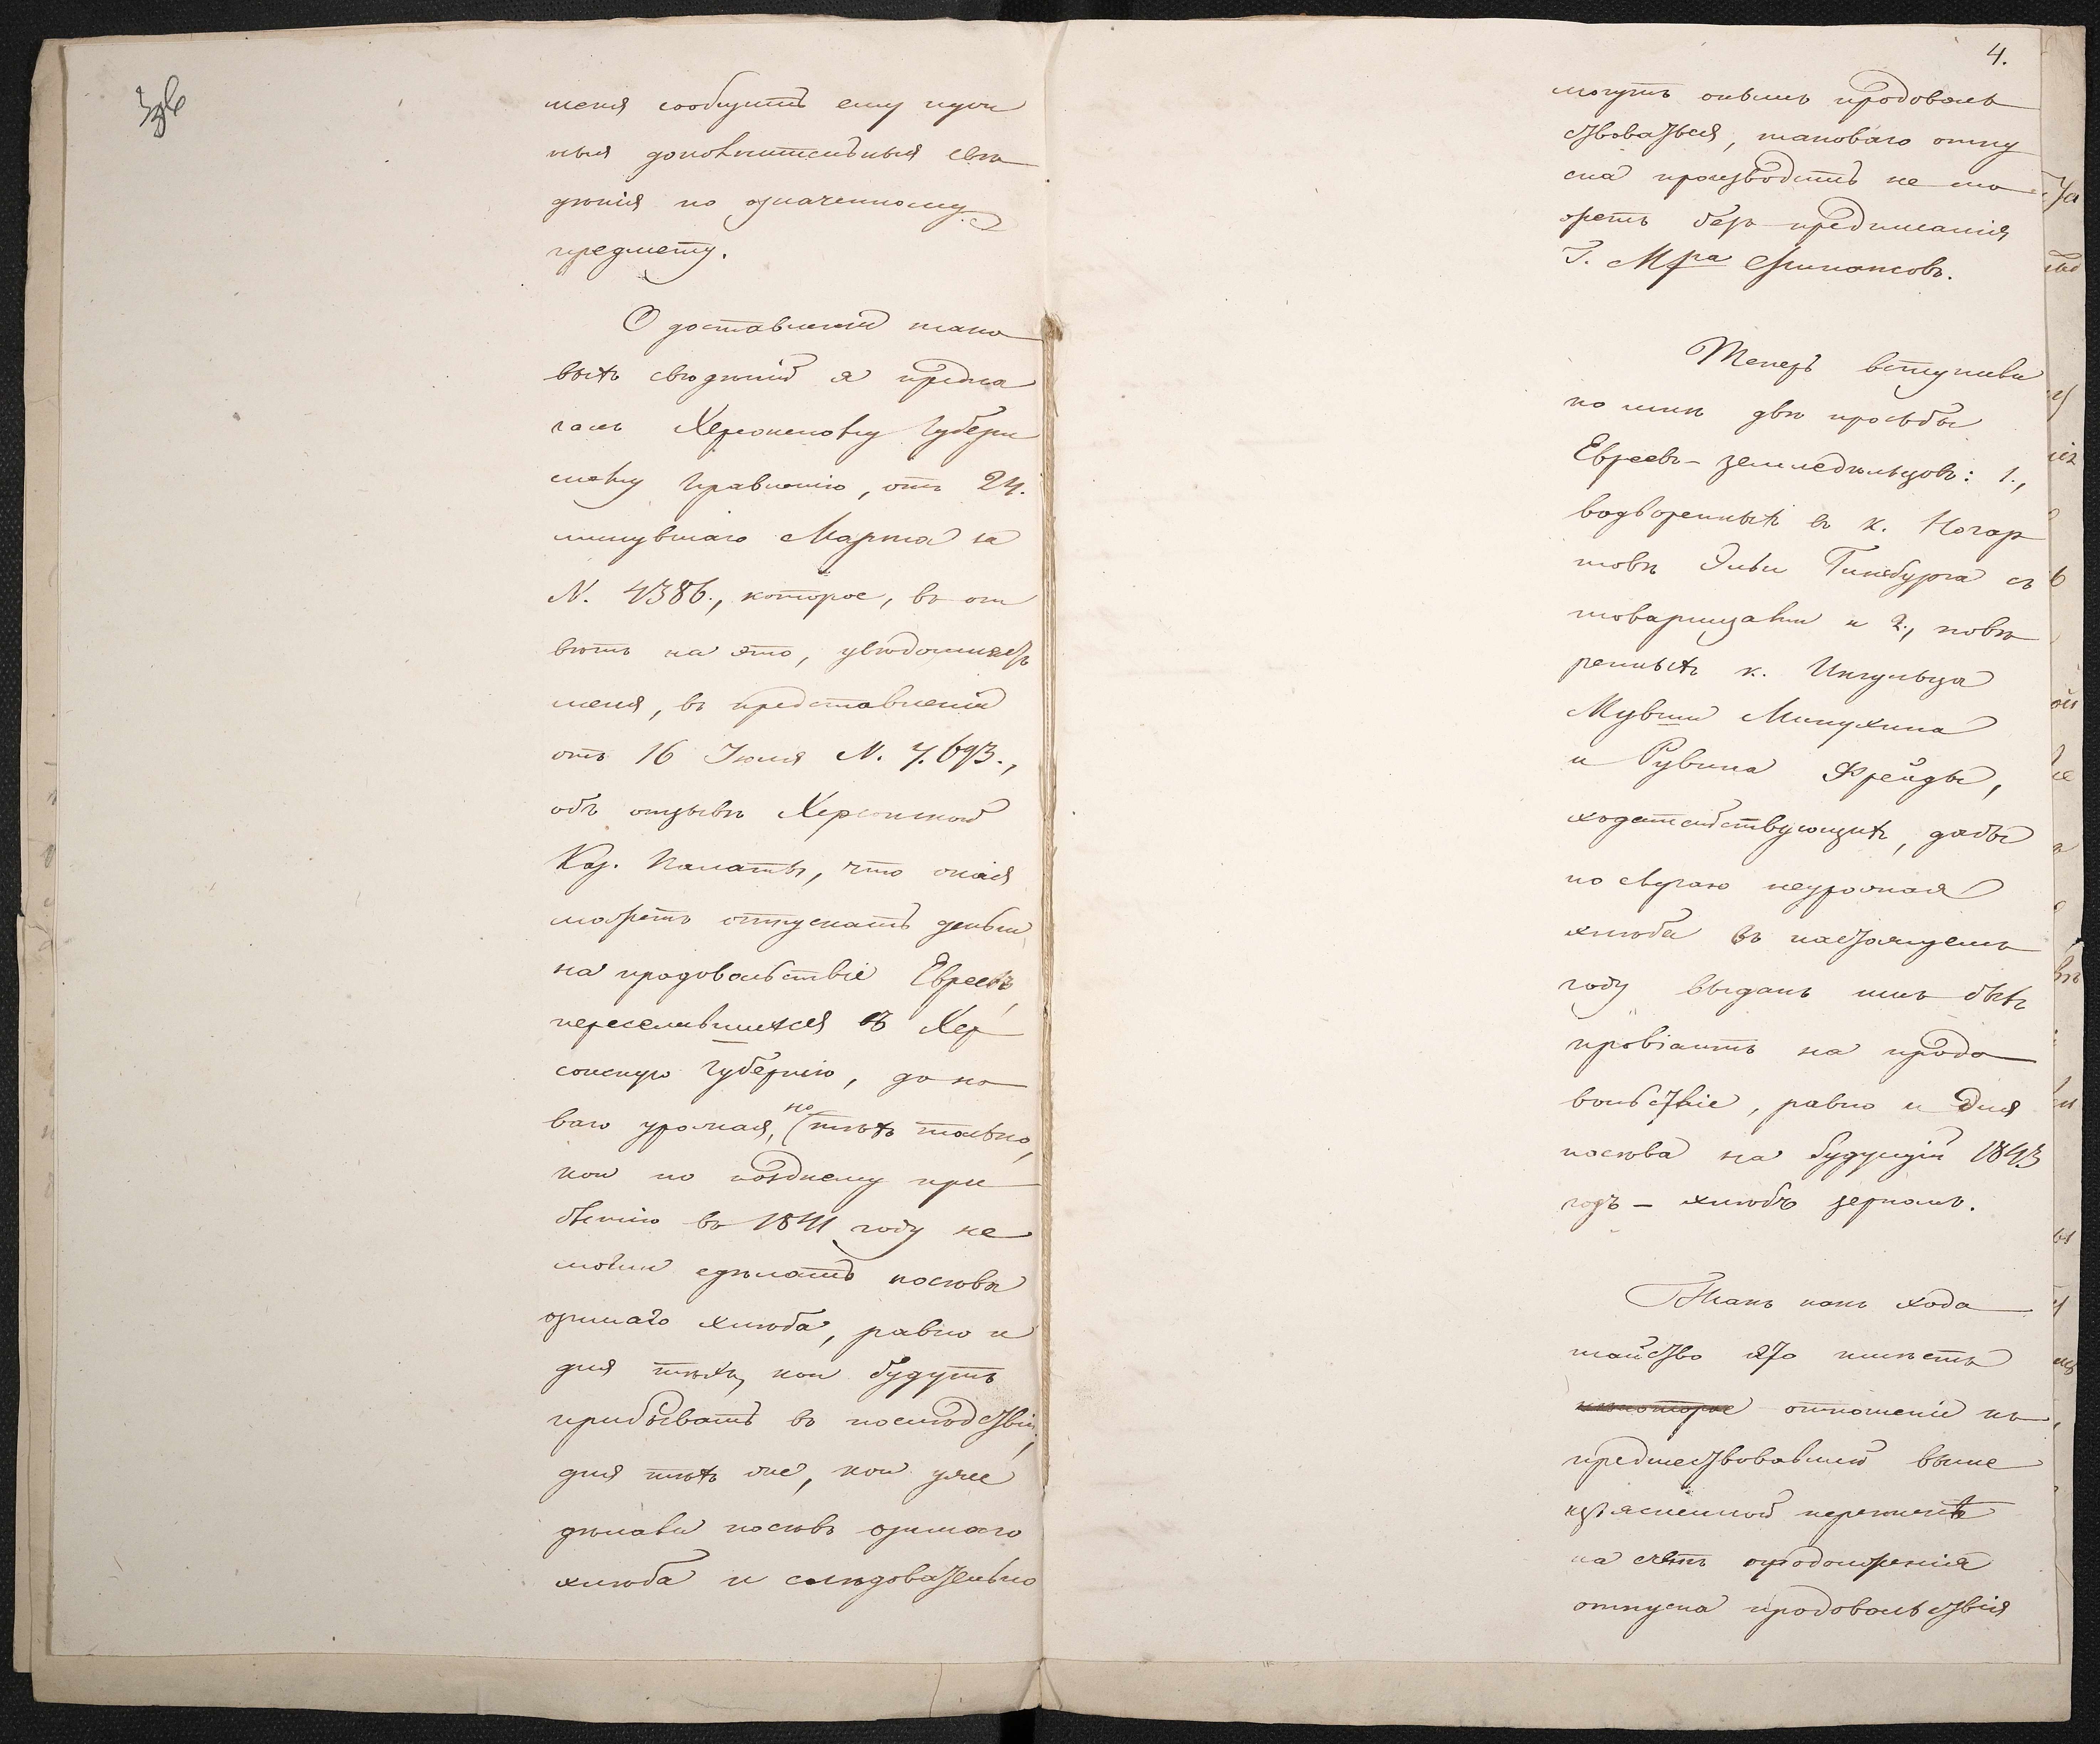 Зв
меня сообщить ему нуж
ныя дополнительныя све
дѣнія по означенному
предмету.
О доставленіи тако
выхъ свѣдѣній я предла
галъ Херсонскому Губерн
скому Правленію, отъ 24.
минувшаго Марта за
N. 4386., которое, въ от
вѣтъ на это, увѣдомляетъ
меня, въ представленіи
отъ 16 Іюля N. 7.693.,
объ отзывѣ Херсонской
Каз. Палаты, что оная
можетъ отпускать деньги
на продовольствіе Евреевъ,
переселившихся въ Хер
сонскую Губернію, до но
ваго урожая, но тѣхъ только,
кои по позднему при
бытію въ 1841 году не
могли сдѣлать посѣва
озимаго хлѣба, равно и
для тѣхъ, кои будутъ
прибывать въ послѣдствіи;
для тѣхъ же, кои уже
дѣлали посѣвъ озимаго
хлѣба и слѣдовательно
4.
могутъ онымъ продоволь
ствоваться, таковаго отпу
ска производить не мо
жетъ безъ предписанія
Г. Мра Финансовъ.
Теперь вступили
ко мнѣ двѣ просьбы
Евреевъ - земледѣльцовъ: 1.,
водворенныхъ в к. Нагар
товѣ Эльи Гинсбурга съ
товарищами и 2., повѣ
ренныхъ к. Ингульца
Мувши Минухина
и Рувина Фрейды,
ходатайствующихъ, дабы
по случаю неурожая
хлѣба въ настоящемъ
году выданъ имъ былъ
провіантъ на продо
вольствіе, равно и для
посѣва на будущій 1843
годъ - хлѣбъ зерномъ.
Такъ какъ хода
тайство это имѣетъ
нѣкоторое отношеніе къ
предшествовавшей выше
изъясненной перепискѣ
на счетъ продолженія
отпуска продовольствія